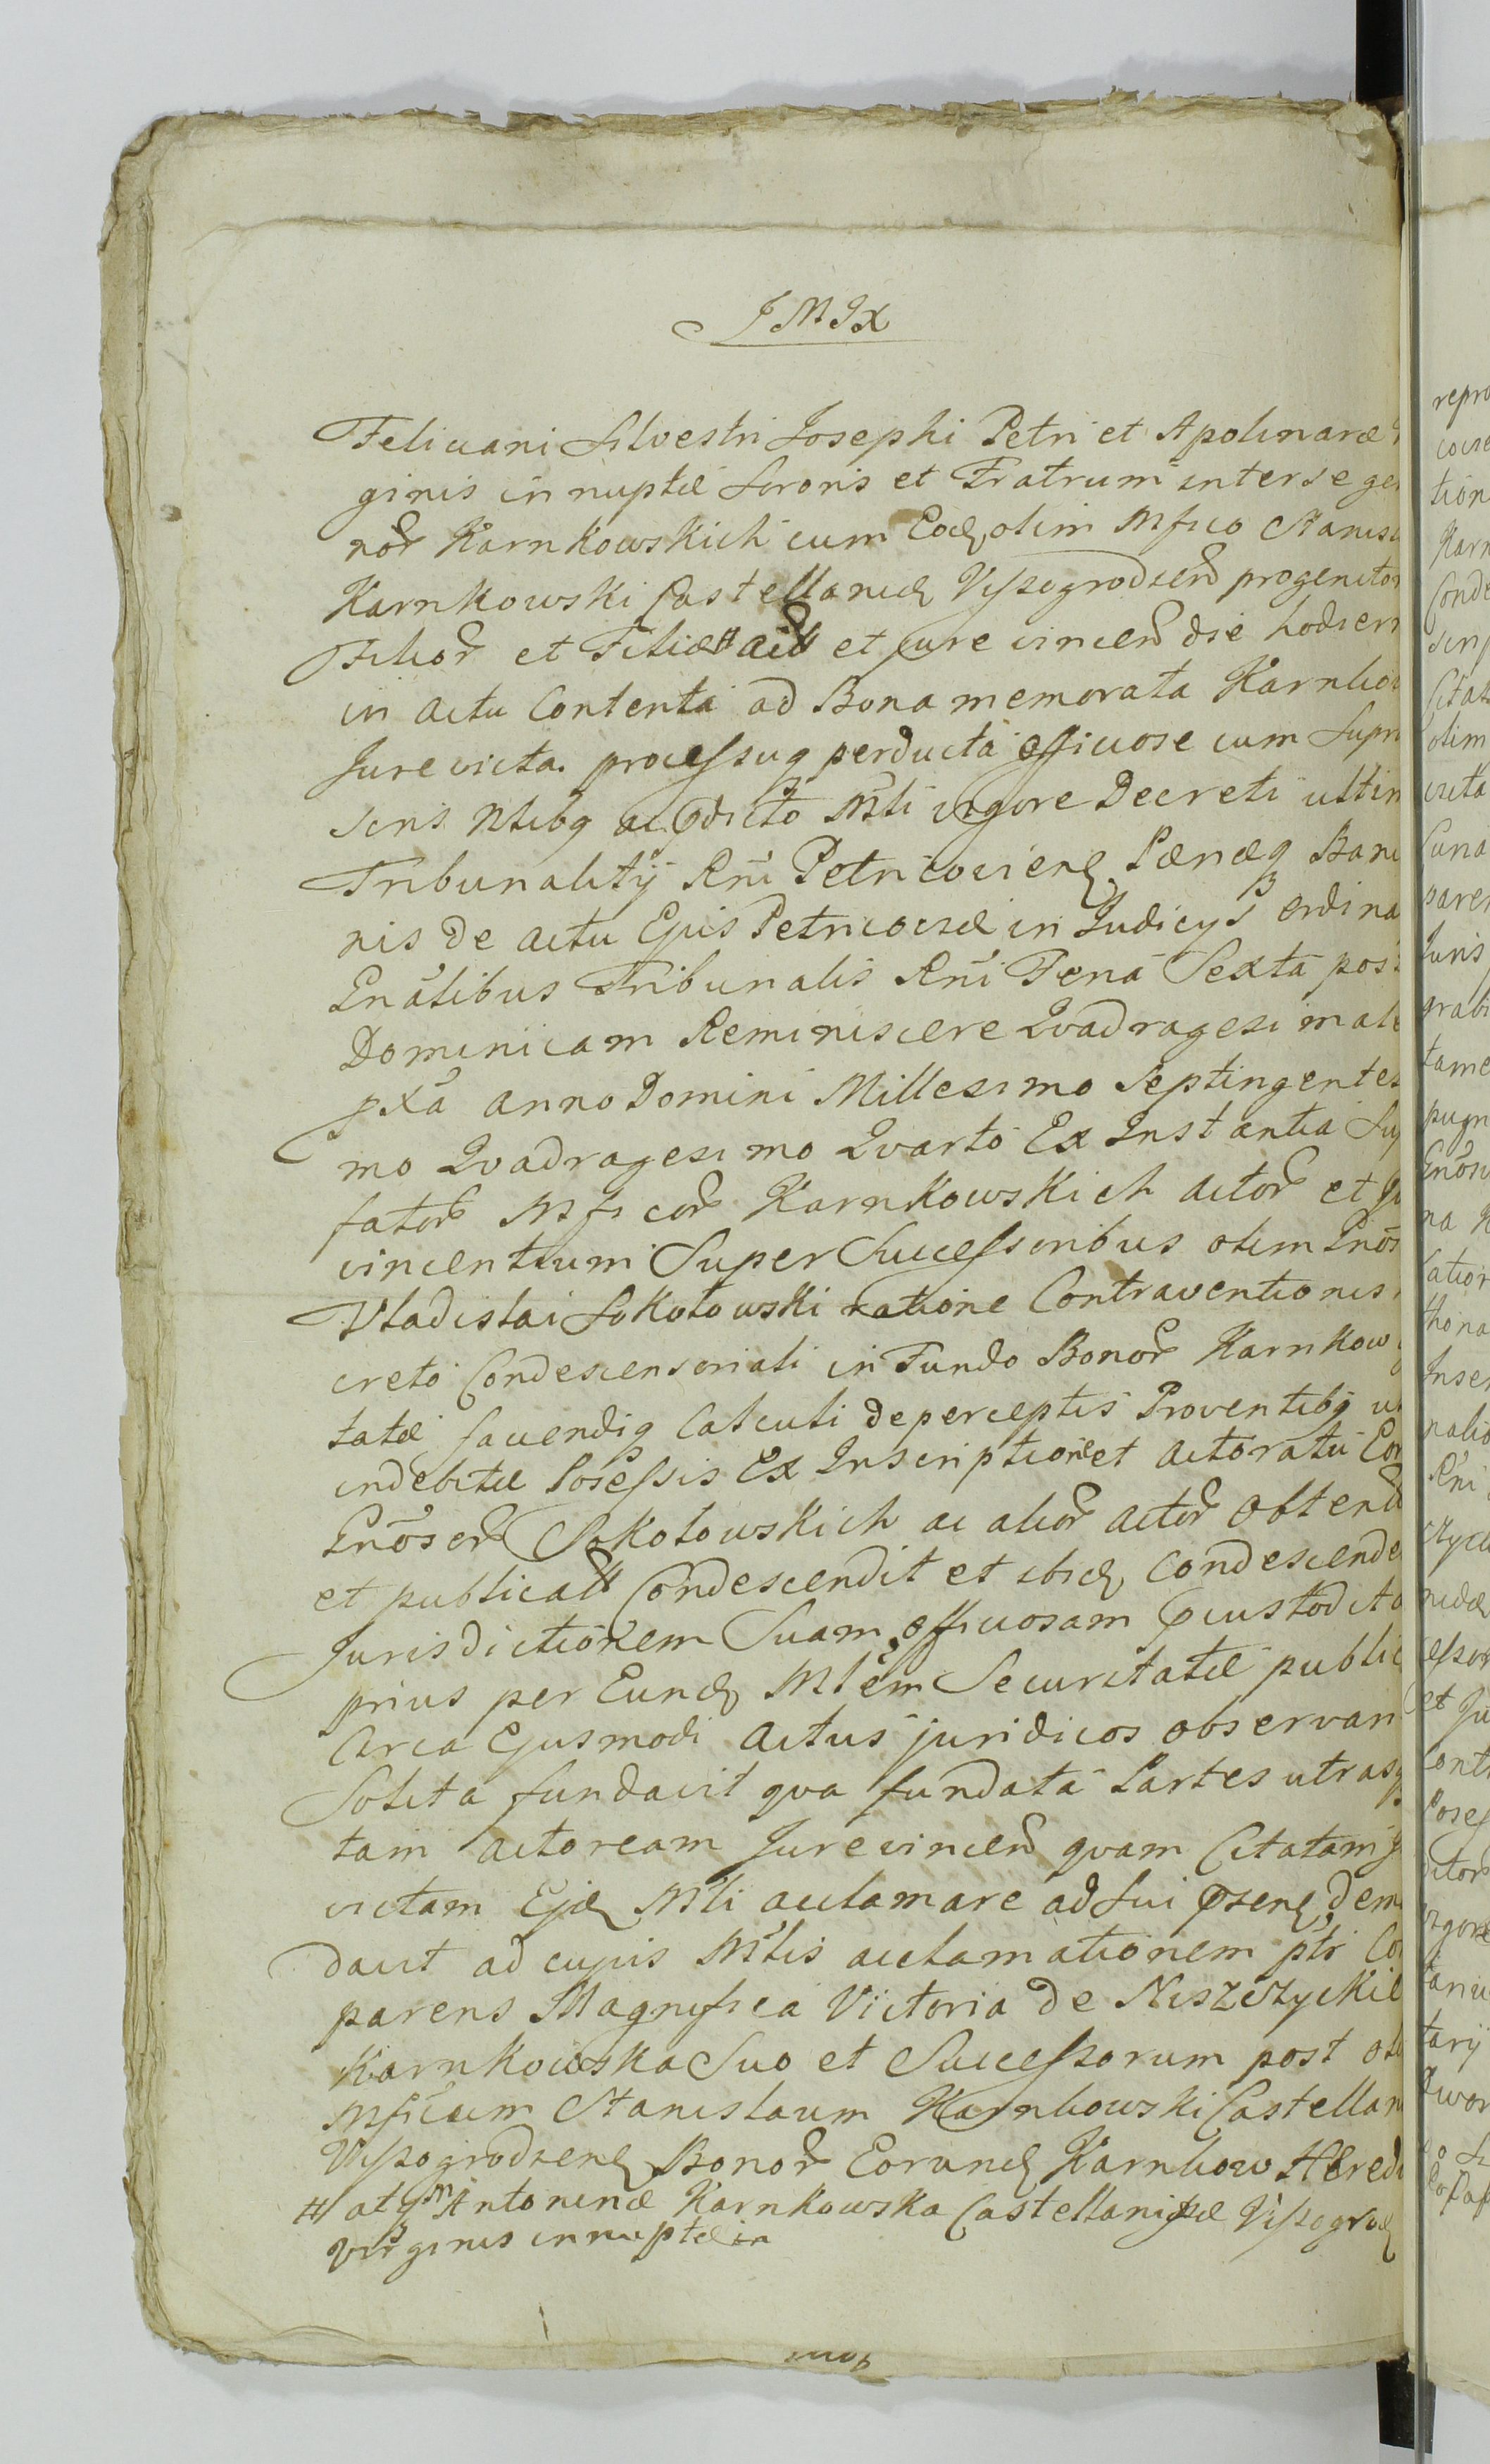 JMJX
Feliciani Silvestri Josephi Petri et Apolinaræ
ginis innuptæ Sororis et Fratrum inter se ger
nor Karnkowskich cum Eodq olim Mfico Stanisl
Karnkowski Castellanidq Vissogrodsen progenitor
Filior et Filiæ # act et jure vincen die hodiern
in actu Contenta ad Bona memorata Karnkow
Jurevicta processuq perducta officiose cum Supra
scris Nlibq ac pdicto Mnli vigore Decreti ultim
Tribunalitij Rni Petricovien Pænæq Bani
nis de actu Ejus Petricoviæ in Judicijs ordina
Gnalibus Tribunalis Rni Feria Sexta post
Dominicam Reminiscere Qvadragesimale
pxa anno Domini Millesimo Septingentes
mo Qvadragesimo Qvarto Ex Instantia Su
fator Mficor Karnkowskich actor et Ju
vincentium Super Successoribus olim Gnos
Vladislai Sokołowski ratione Contraventionis
creto Condescensoriali in Fundo Bonor Karnkow
tatæ favendiq Calculi de perceptis Proventibq
indebitæ Posessis Ex Inscriptione et actoratu
Gnosor Sokołowskich ac alior actor obten
et publicat Condescendit et ibidq condescende
Jurisdictionem Suam officiosam pcustodita
prius per Eundq Mlem Securitatæ public
Circa Ejusmodi actus juridicos observan
Solita fundavit qva fundata Partes utrasq
tam actoream Jurevincen qvam Citatam J
victam Ejdq Mli acclamare ad sui psen dem
davit ad cujus Mlis acclamationem ptr Co
parens Magnifica Victoria de Niszczyckie
Karnkowska Suo et Successorum post oli
Mficum Stanislaum Karnkowski Castellan
Vissogrodsen Bonor Eorundq Karnkow Heredu
# atq M Antoninæ Karnkowska Castellanissæ Vissogrod
virginis innuptæ in
repro
tion
Karn
Conde
Citat
olim
victa
paren
Juris
grabi
tame
pugn
Gnoso
na K
ratior
Inser
Rni
et Ju
Cont
Poses
tarij